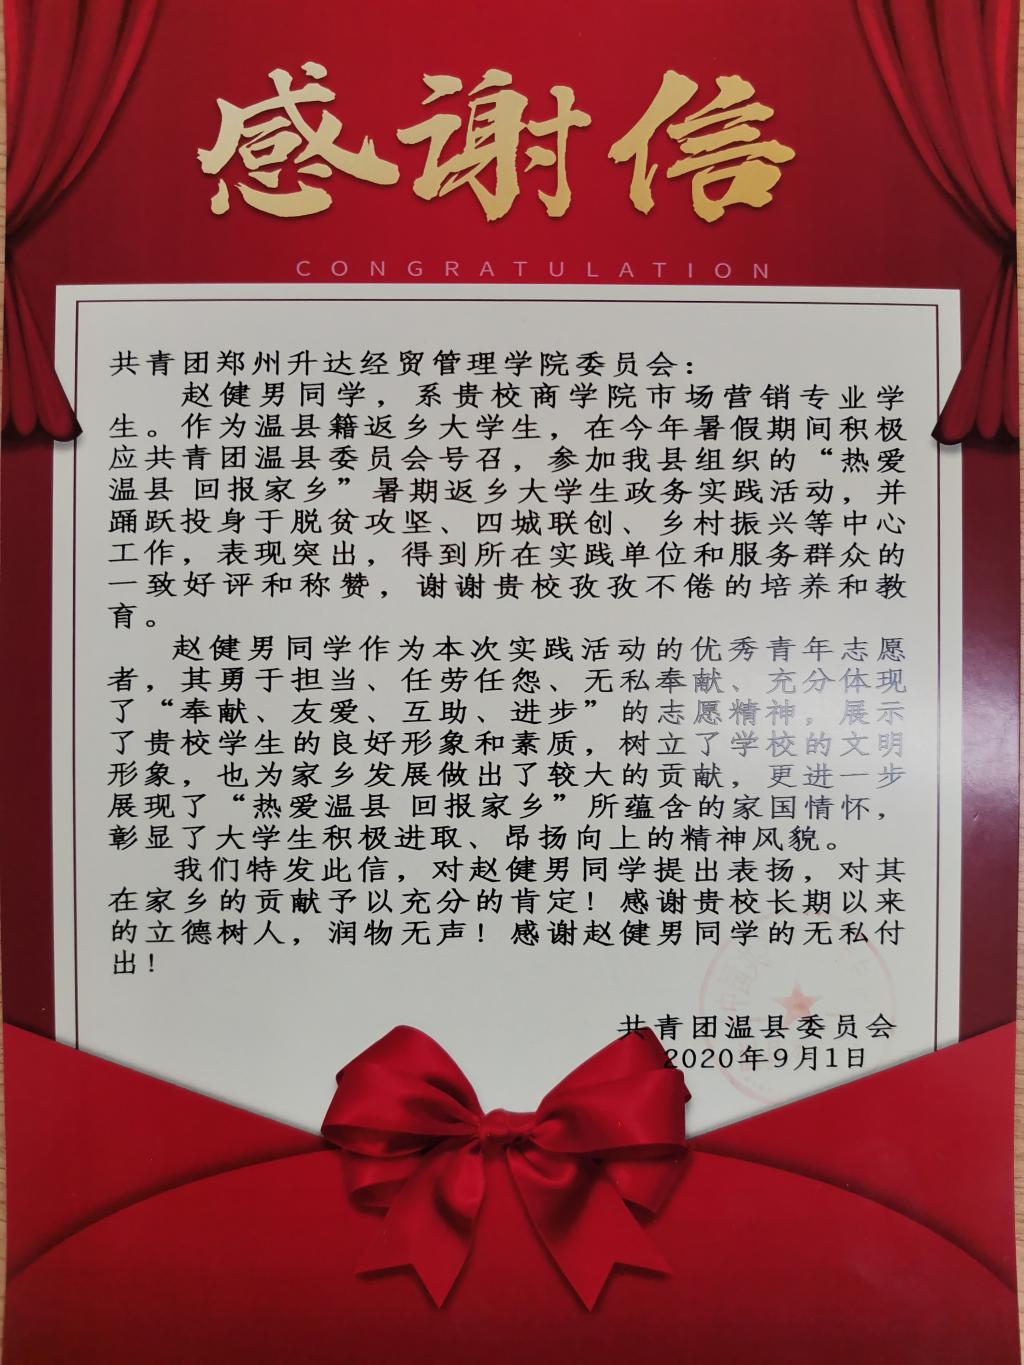 感谢信
CONGRATULATION
共青团郑州升达经贸管理学院委员会：
赵健男同学，系贵校商学院市场营销专业学
生。作为温县籍返乡大学生，在今年暑假期间积极
应共青团温县委员会号召，参加我县组织的“热爱
温县 回报家乡”暑期返乡大学生政务实践活动，并
踊跃投身于脱贫攻坚、四城联创、乡村振兴等中心
工作，表现突出，得到所在实践单位和服务群众的
一致好评和称赞，谢谢贵校孜孜不倦的培养和教
育。
赵健男同学作为本次实践活动的优秀青年志愿
者，其勇于担当、任劳任怨、无私奉献、充分体现
了“奉献、友爱、互助、进步”的志愿精神，展示
了贵校学生的良好形象和素质，树立了学校的文明
形象，也为家乡发展做出了较大的贡献，更进一步
展现了“热爱温县 回报家乡”所蕴含的家国情怀，
彰显了大学生积极进取、昂扬向上的精神风貌。
我们特发此信，对赵健男同学提出表扬，对其
在家乡的贡献予以充分的肯定！感谢贵校长期以来
的立德树人，润物无声！感谢赵健男同学的无私付
出！
共青团温县委员会
2020年9月1日